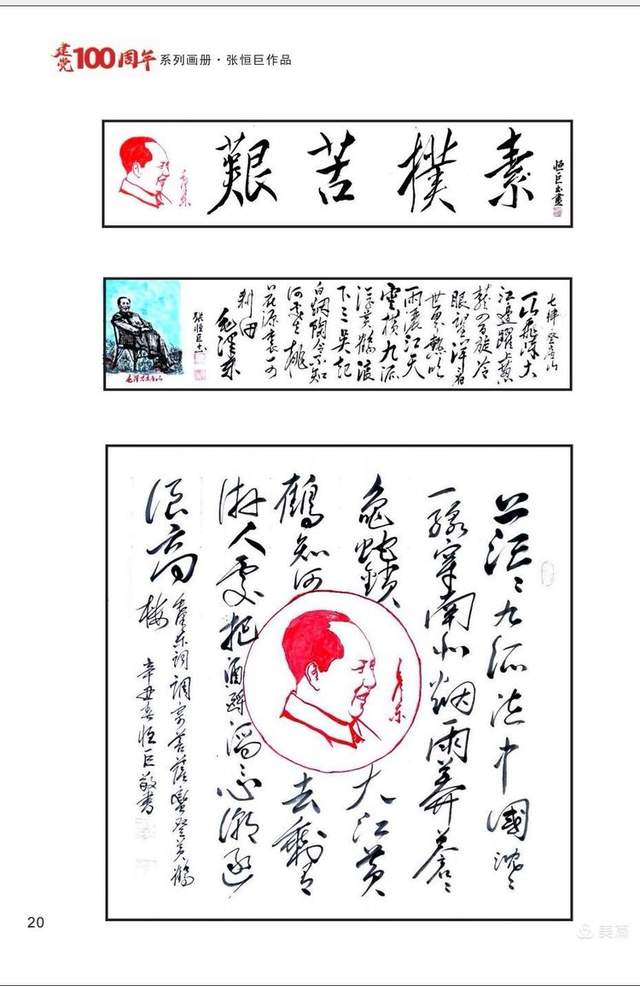 建党100周年 系列画册·张恒巨作品
毛泽东
艱苦樸素
恒巨书画
七律 登庐山
一山飞峙大
江边跃上葱
茏四百旋冷
眼向洋看
世界热风吹
雨洒江天
云横九派
浮黄鹤浪
下三吴起
白烟陶令不知
何处去桃
花源里可
耕田
毛泽东
张恒巨书
茫〻九派流中國沈〻
一線穿南北烟雨莽蒼〻
龜蛇鎖大江黄
鶴知何去剩有
游人處把酒酹滔〻心潮逐
浪高
毛泽东词調寄菩薩蠻登黄鶴
樓 辛丑春恒巨敬书
毛泽东
20
美篇